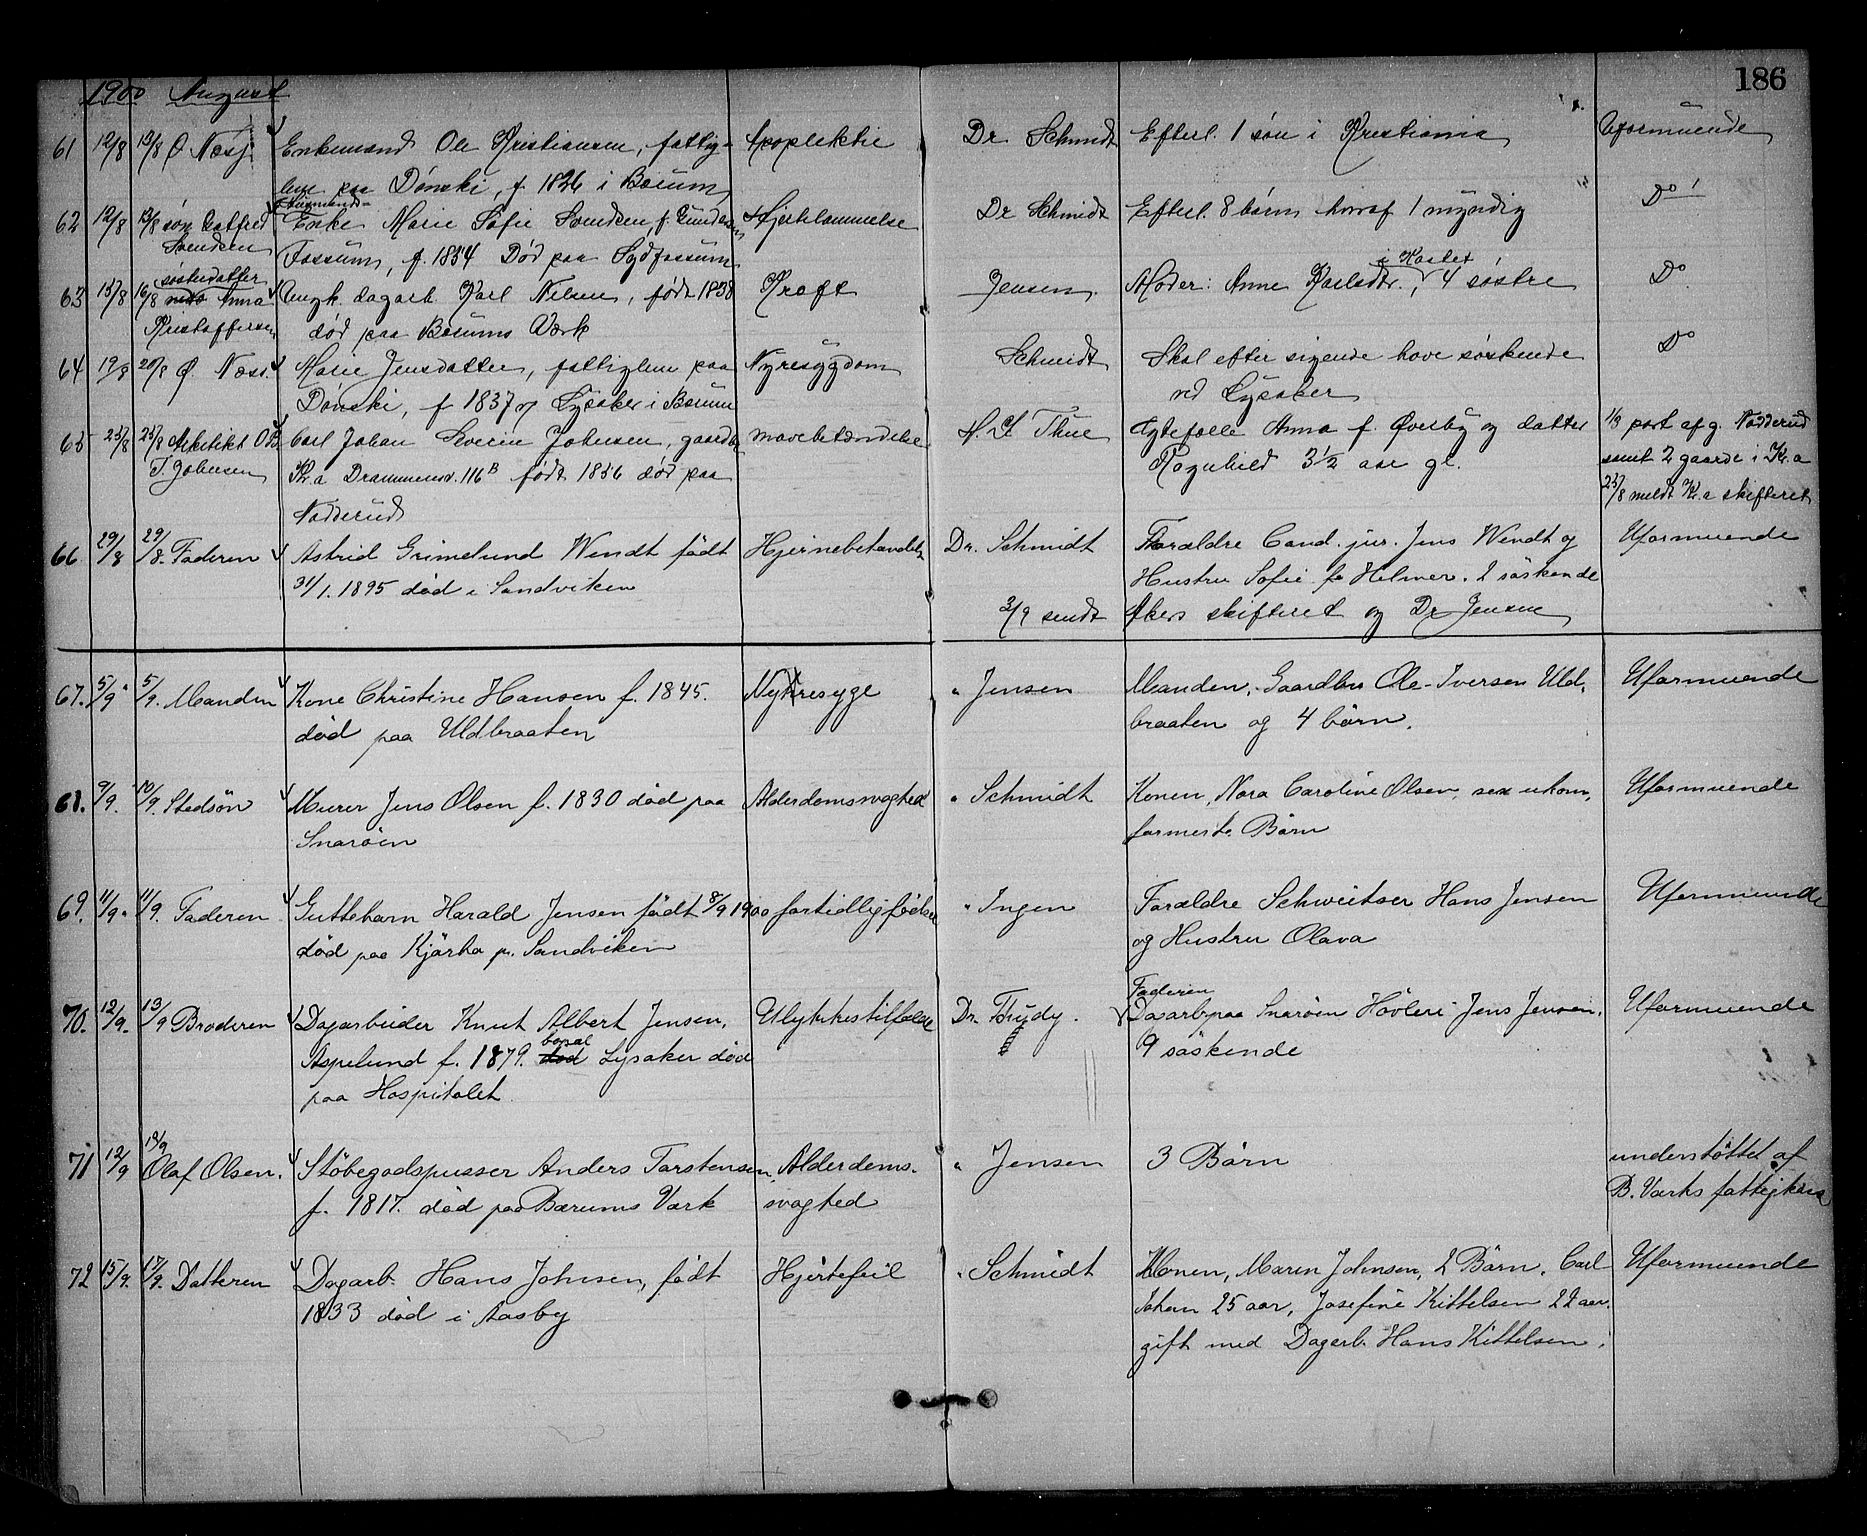 186
1900 August
61 12/8 13/8 Ø Næsj. Enkemand Ole Kristiansen, fattig- Apoplektie Dr. Schmidt Efterl. 1 søn i Kristiania Uformuende
lem paa Dønski, f. 1826 i Bærum
62 12/8 13/8 søn Gotfred Enke Marie Sofie Svendsen, f. Gundersen Hjertelammelse Dr Schmidt Efterl. 8 børn hvoraf 1 myndig Do
Svendsen Fossum, f. 1854 Død paa Sydfossum
søsterdatter i Kostet
63 15/8 16/8 Anna Ungk. dagarb. Karl Nilsen, født 1838 Kræft Jensen Moder: Anne Karlsdtr., 4 søstre Do
Kristoffersen død paa Bærums Værk
64 19/8 20/8 Ø. Næss. Marie Jensdatter, fattiglem paa Nyresygdom Schmidt Skal efter sigende have søskende Do
Dønski, f 1837 Lysaker i Bærum ved Lysaker
65 23/8 25/8 Arkitekt O B. Carl Johan Severin Johnsen, gaardbr mavebetændelse H. J. Thue Egtefælle Anna f. Øverby og datter 1/3 part af g. Nadderud
T. Johnsen Kr.a Drammensv. 116B født 1856 død paa Ragnhild 3½ aar gl. samt 2 gaarde i Kr.a
Nadderud 25/8 meldt Kr.a skifteret
66 29/8 29/8. Faderen Astrid Grimelund Wendt født Hjernebetændelse Dr. Schmidt Forældre Cand. jur. Jens Wendt og Uformuende
31/1. 1895 død i Sandviken Hustru Sofie f. Helmer. 2 søskende
3/9 sendt Akers skifteret og Dr Jensen
67. 5/9 5/9. Manden Kone Christine Hansen f. 1845. Nyresyge " Jensen Manden, Gaardbr Ole Iversen Uld- Uformuende
død paa Uldbraaten braaten og 4 børn.
68. 9/9. 10/9. Stedsøn Murer Jens Olsen f. 1830 død paa Alderdomsvaghed " Schmidt Konen, Nora Caroline Olsen, sex ukon- Uformuende
Snarøen firmerte Børn
69. 11/9. 11/9. Faderen Guttebarn Harald Jensen født 8/9 1900 fortidlig fødsel " Ingen Forældre Schweitser Hans Jensen Uformuende
død paa Kjørbo pr. Sandviken og Hustru Olava
Faderen
70. 12/9. 13/9 Broderen Dagarbeider Knut Albert Jensen, Ulykkestilfælde Dr. Thudy. Dagarb. paa Snarøen Høvleri Jens Jensen, Uformuende
bopæl
Aspelund f. 1879. død Lysaker død 9 søskende
paa Hospitalet
71 12/9 18/9 Olaf Olsen. Støbegodspusser Anders Torstensen, Alderdoms- " Jensen 3 Børn understøttet af
f. 1817. død paa Bærums Værk svaghed B. Værks fattigkasse
72 15/9. 17/9. Datteren Dagarb. Hans Johnsen, født Hjertefeil " Schmidt Konen, Maren Johnsen, 2 Børn, Carl Uformuende
1833 død i Aasby Johan 25 aar, Josefine Kittelsen 22 aar.
gift med Dagarb. Hans Kittelsen.